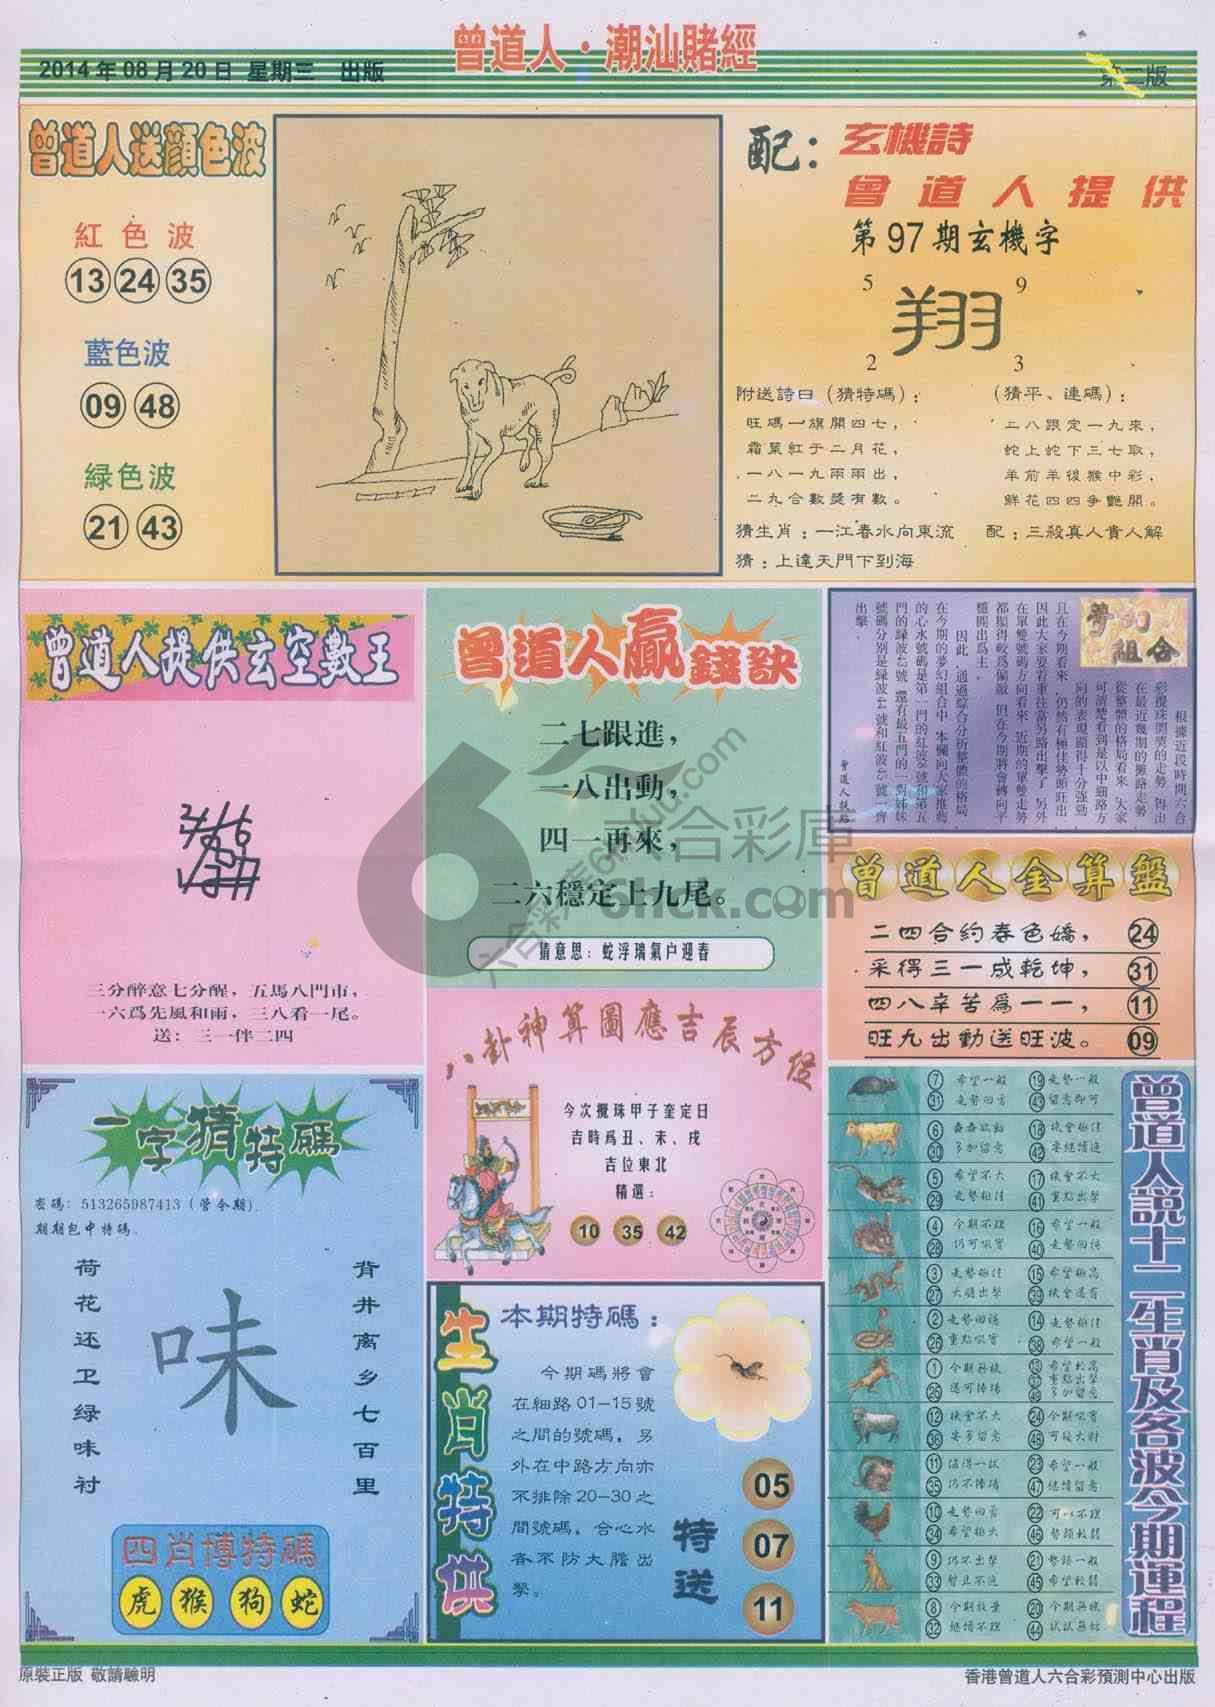 曾道人·潮汕賭經
2014年08月20日 星期三 出版
第二版
曾道人送顏色波
紅色波
13 24 35
藍色波
09 48
綠色波
21 43
配:
玄機詩
曾道人提供
第97期玄機字
5 9
翔
2 3
附送詩曰(猜特碼):
旺碼一旗開四七,
霜葉紅于二月花,
一八一九兩兩出,
二九合數獎有數。
(猜平、連碼):
上八跟定一九來,
蛇上蛇下三七取,
羊前羊後猴中彩,
鮮花四四爭艷開。
猜生肖:一江春水向東流
配:三殺真人貴人解
猜:上達天門下到海
曾道人提供玄空數王
三分醉意七分醒,五馬八門市,
一六爲先風和雨,三八看一尾。
送:三一伴二四
曾道人贏錢訣
二七跟進,
一八出動,
四一再來,
二六穩定上九尾。
猜意思:蛇浮瑞氣户迎春
夢幻組合
根據近段時間六合
彩攪珠開獎的走勢,得出
在最近幾期的攤路走勢
從整體的格局看來,大家
可清楚看到是以中細路方
向的表現顯得十分強勁
且在今期看來,仍然有極佳勢頭旺出
因此大家要着重注當另路出擊了,另外
在單雙號碼方向看來,近期的單雙走勢
都顯得較爲偏敵,但在今期將會轉向平
穩開出爲主。
因此,通過綜合分析整體的格局
在今期的夢幻組合中,本欄向大家推薦
出擊。
曾道人提點
曾道人金算盤
二四合約春色嬌, 24
采得三一成乾坤, 31
四八辛苦爲一一, 11
旺九出動送旺波。 09
八卦神算圖應吉辰方從
今次攪珠甲子奎定日
吉時爲丑、未、戌
吉位東北
精選:
10 35 42
一字猜特碼
密碼:513265987413(管今期)
期期包中特碼
荷花还卫绿味衬
味
背井离乡七百里
四肖博特碼
虎 猴 狗 蛇
生肖特供
本期特碼:
今期碼將會
在細路01-15號
之間的號碼,另
外在中路方向亦
不排除20-30之
間號碼,合心水
者不防大膽出
擊。
特送
05
07
11
曾道人說十二生肖及各波今期運程
7 希望一般 19 走勢一般
31 走勢回勇 43 留意即可
6 蠢蠢欲動 18 機會極佳
30 多加留意 42 要繼續追
5 希望不大 17 機會不大
29 走勢極佳 41 重點出擊
4 今期不理 16 希望一般
28 仍可吼實 40 走勢回落
3 走勢極佳 15 希望極高
27 大膽出擊 39 機會還有
2 走勢回落 14 走勢極佳
26 重點吼實 38 希望一般
1 今期無機 13 希望較高
25 還可捧場 37 重點出擊
49 多加留意
12 機會不大 24 今期吼實
36 要多留意 48 可疑大射
11 值得一試 23 希望一般
35 仍不捧場 47 繼續留意
10 走勢回勇 22 可以不理
34 希望極大 46 勢頭較弱
9 仍不出擊 21 勢頭一般
33 暫且不追 45 希望較弱
8 今期放量 20 今期無機
32 繼續不理 44 試試無妨
六合彩庫
6lick.com
原裝正版 敬請驗明
香港曾道人六合彩預測中心出版